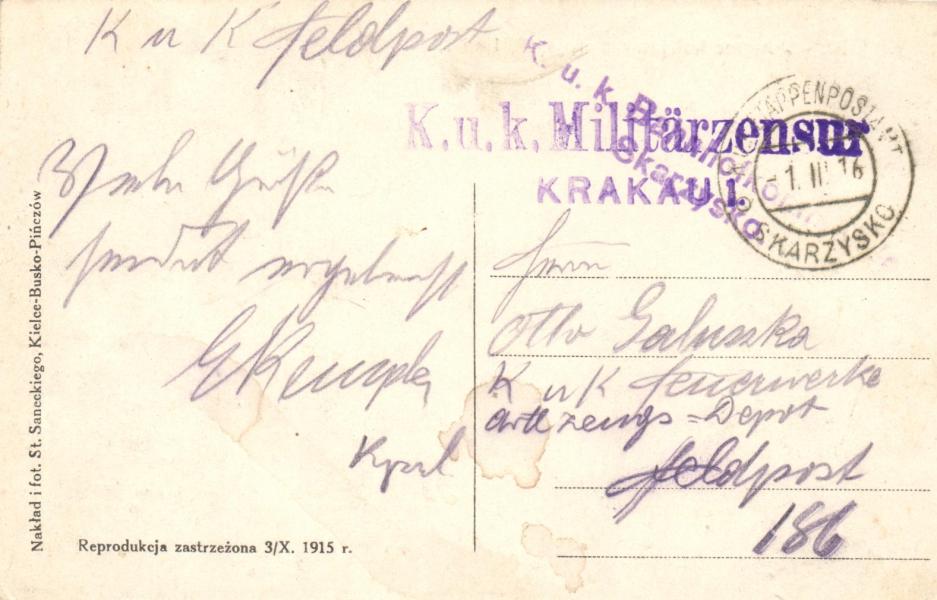 K u K Feldpost
K. u. k.
Skarzysko.
K.u.k. Militärzensur
KRAKAU 1.
ETAPPENPOSTAMT
-1. III 16
SKARZYSKO
Grüße
sendet
Kempla
Herrn
Otto Galuszka
K u K Feuerwerke
artl zeugs = Depot
Feldpost
186
Nakład i fot. St. Saneckiego, Kielce-Busko-Pińczów
Reprodukcja zastrzeżona 3/X. 1915 r.